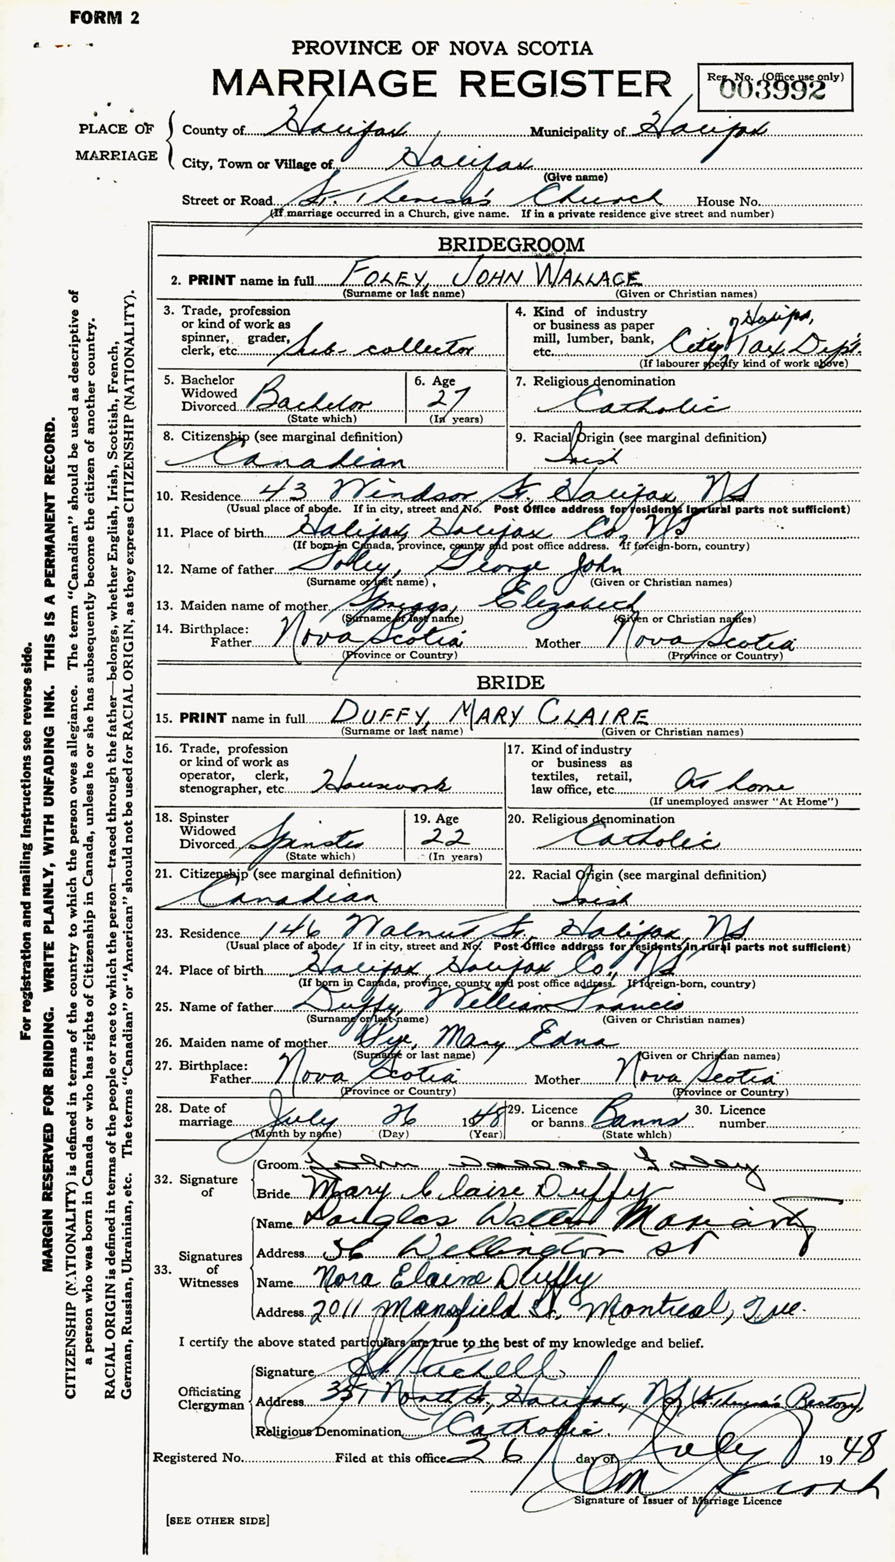 FORM 2
PROVINCE OF NOVA SCOTIA
MARRIAGE REGISTER
Reg. No. (Office use only)
003992
PLACE OF MARRIAGE
County of Halifax Municipality of Halifax
City, Town or Village of Halifax
(Give name)
Street or Road St. Theresa's Church House No.
(If marriage occurred in a Church, give name. If in a private residence give street and number)
BRIDEGROOM
2. PRINT name in full FOLEY, JOHN WALLACE
(Surname or last name) (Given or Christian names)
3. Trade, profession or kind of work as spinner, grader, clerk, etc. Sub-collector
4. Kind of industry or business as paper mill, lumber, bank, etc. City of Halifax, Tax Dept.
(If labourer specify kind of work above)
5. Bachelor Widowed Divorced Bachelor
(State which)
6. Age 27
(In years)
7. Religious denomination
Catholic
8. Citizenship (see marginal definition)
Canadian
9. Racial Origin (see marginal definition)
Irish
10. Residence 43 Windsor St. Halifax, NS
(Usual place of abode. If in city, street and No. Post Office address for residents in rural parts not sufficient)
11. Place of birth Halifax, Halifax Co., NS
(If born in Canada, province, county and post office address. If foreign-born, country)
12. Name of father Foley, George John
(Surname or last name) (Given or Christian names)
13. Maiden name of mother Spriggs, Elizabeth
(Surname or last name) (Given or Christian names)
14. Birthplace:
Father Nova Scotia Mother Nova Scotia
(Province or Country) (Province or Country)
BRIDE
15. PRINT name in full DUFFY, MARY CLAIRE
(Surname or last name) (Given or Christian names)
16. Trade, profession or kind of work as operator, clerk, stenographer, etc. Housework
17. Kind of industry or business as textiles, retail, law office, etc. At home
(If unemployed answer "At Home")
18. Spinster Widowed Divorced Spinster
(State which)
19. Age 22
(In years)
20. Religious denomination
Catholic
21. Citizenship (see marginal definition)
Canadian
22. Racial Origin (see marginal definition)
Irish
23. Residence 146 Walnut St. Halifax, NS
(Usual place of abode. If in city, street and No. Post Office address for residents in rural parts not sufficient)
24. Place of birth Halifax, Halifax Co., NS
(If born in Canada, province, county and post office address. If foreign-born, country)
25. Name of father Duffy, William Francis
(Surname or last name) (Given or Christian names)
26. Maiden name of mother Mary Edna
(Surname or last name) (Given or Christian names)
27. Birthplace:
Father Nova Scotia Mother Nova Scotia
(Province or Country) (Province or Country)
28. Date of marriage July 26 1948
(Month by name) (Day) (Year)
29. Licence or banns Banns
(State which)
30. Licence number
32. Signature of
Groom John Wallace Foley
Bride Mary Claire Duffy
33. Signatures of Witnesses
Name Douglas Walter
Address 36 Wellington St
Name Nora Elaine Duffy
Address 2011 Mansfield St. Montreal, Que.
I certify the above stated particulars are true to the best of my knowledge and belief.
Officiating Clergyman
Signature
Address 331 North St., Halifax, NS (St. Theresa's Rectory)
Religious Denomination Catholic.
Registered No. Filed at this office 26 day of July 1948
Signature of Issuer of Marriage Licence
[SEE OTHER SIDE]
For registration and mailing instructions see reverse side.
MARGIN RESERVED FOR BINDING. WRITE PLAINLY, WITH UNFADING INK. THIS IS A PERMANENT RECORD.
CITIZENSHIP (NATIONALITY) is defined in terms of the country to which the person owes allegiance. The term "Canadian" should be used as descriptive of
a person who was born in Canada or who has rights of Citizenship in Canada, unless he or she has subsequently become the citizen of another country.
RACIAL ORIGIN is defined in terms of the people or race to which the person—traced through the father—belongs, whether English, Irish, Scottish, French,
German, Russian, Ukrainian, etc. The terms "Canadian" or "American" should not be used for RACIAL ORIGIN, as they express CITIZENSHIP (NATIONALITY).